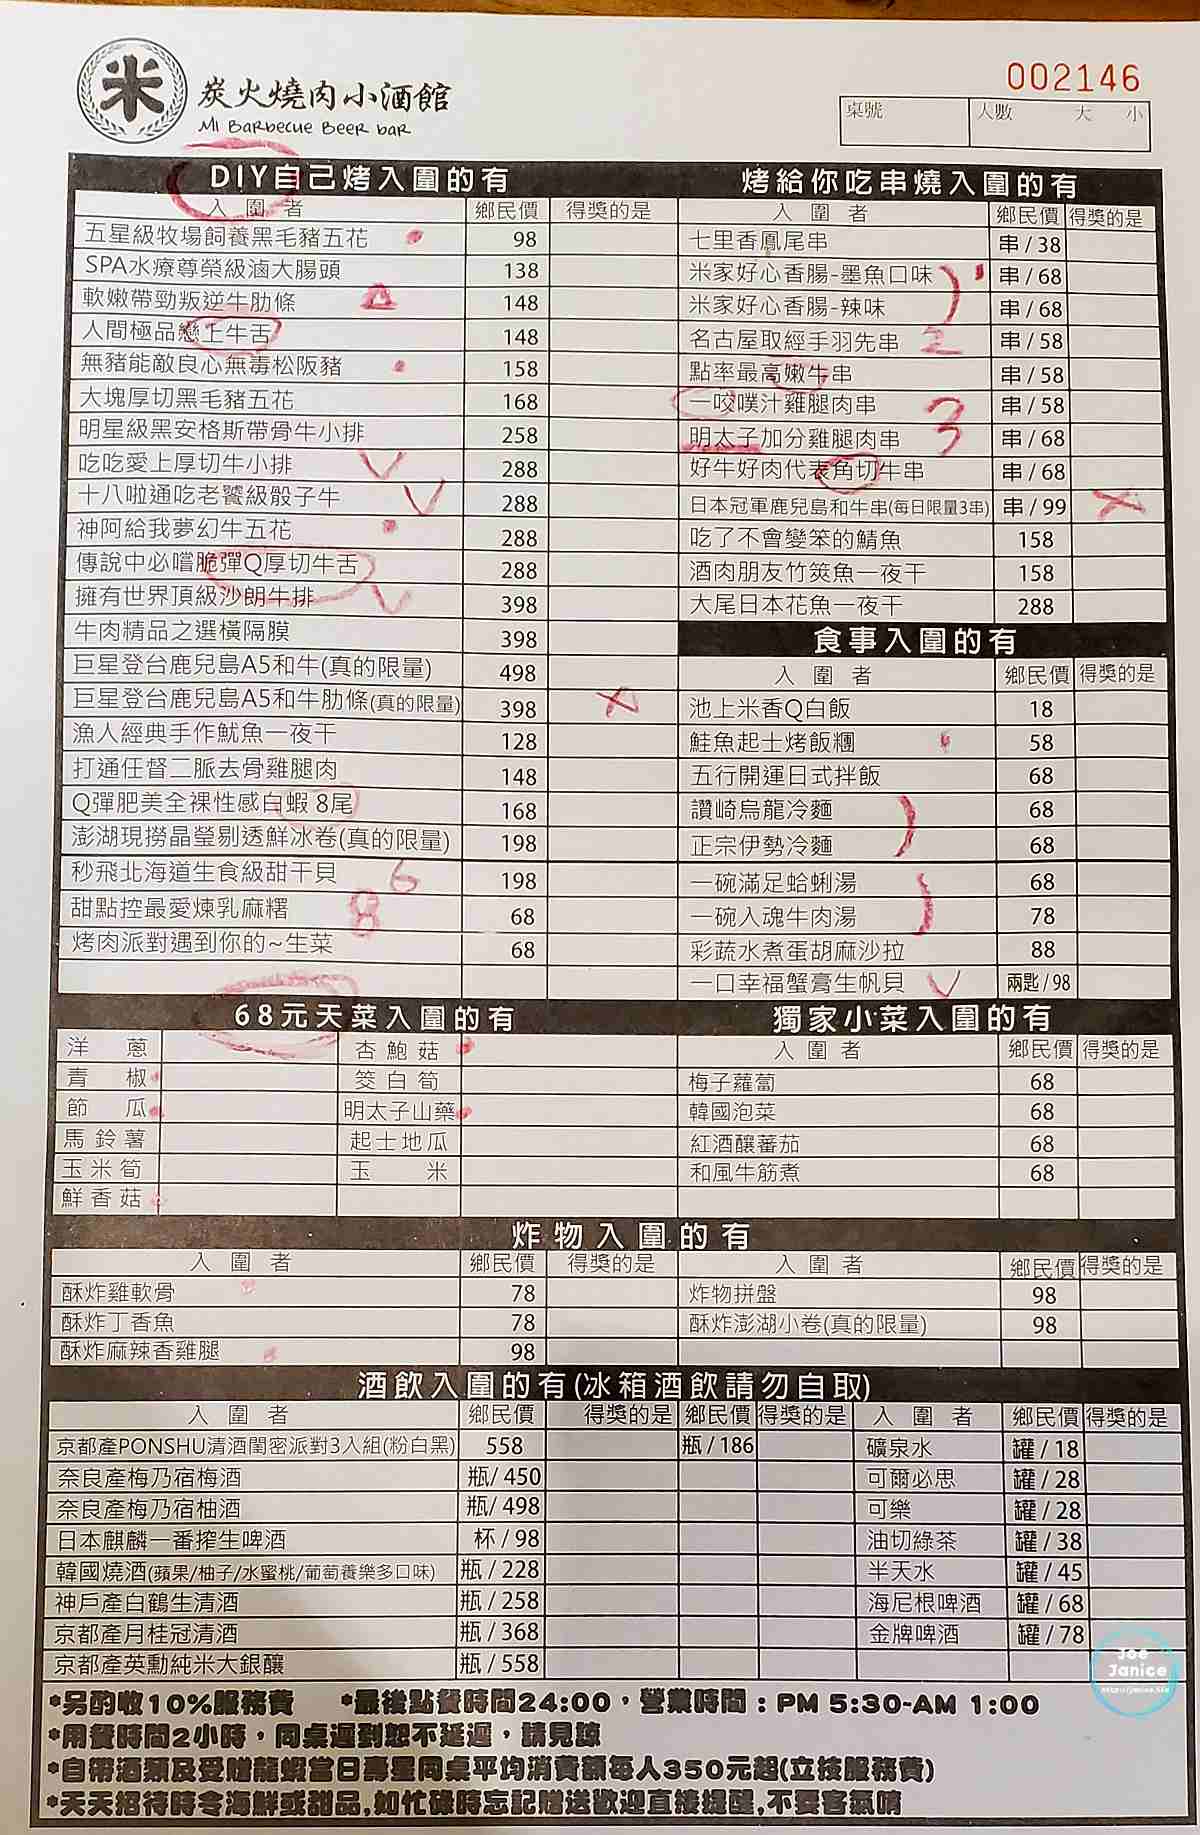 米 炭火燒肉小酒館
MI Barbecue Beer bar
002146
桌號 人數 大 小
DIY自己烤入圍的有
入圍者 鄉民價 得獎的是
五星級牧場飼養黑毛豬五花 98
SPA水療尊榮級滷大腸頭 138
軟嫩帶勁叛逆牛肋條 148
人間極品戀上牛舌 148
無豬能敵良心無毒松阪豬 158
大塊厚切黑毛豬五花 168
明星級黑安格斯帶骨牛小排 258
吃吃愛上厚切牛小排 288
十八啦通吃老饕級骰子牛 288
神阿給我夢幻牛五花 288
傳說中必嚐脆彈Q厚切牛舌 288
擁有世界頂級沙朗牛排 398
牛肉精品之選橫隔膜 398
巨星登台鹿兒島A5和牛(真的限量) 498
巨星登台鹿兒島A5和牛肋條(真的限量) 398
漁人經典手作魷魚一夜干 128
打通任督二脈去骨雞腿肉 148
Q彈肥美全裸性感白蝦 8尾 168
澎湖現撈晶瑩剔透鮮冰卷(真的限量) 198
秒飛北海道生食級甜干貝 6 198
甜點控最愛煉乳麻糬 8 68
烤肉派對遇到你的~生菜 68
烤給你吃串燒入圍的有
入圍者 鄉民價 得獎的是
七里香鳳尾串 串/38
米家好心香腸-墨魚口味 串/68
米家好心香腸-辣味 串/68
名古屋取經手羽先串 2 串/58
點率最高嫩牛串 串/58
一咬噗汁雞腿肉串 3 串/58
明太子加分雞腿肉串 串/68
好牛好肉代表角切牛串 串/68
日本冠軍鹿兒島和牛串(每日限量3串) 串/99
吃了不會變笨的鯖魚 158
酒肉朋友竹筴魚一夜干 158
大尾日本花魚一夜干 288
食事入圍的有
入圍者 鄉民價 得獎的是
池上米香Q白飯 18
鮭魚起士烤飯糰 58
五行開運日式拌飯 68
讚崎烏龍冷麵 68
正宗伊勢冷麵 68
一碗滿足蛤蜊湯 68
一碗入魂牛肉湯 78
彩蔬水煮蛋胡麻沙拉 88
一口幸福蟹膏生帆貝 兩匙/98
68元天菜入圍的有
洋蔥 杏鮑菇
青椒 筊白筍
節瓜 明太子山藥
馬鈴薯 起士地瓜
玉米筍 玉米
鮮香菇
獨家小菜入圍的有
入圍者 鄉民價 得獎的是
梅子蘿蔔 68
韓國泡菜 68
紅酒釀蕃茄 68
和風牛筋煮 68
炸物入圍的有
入圍者 鄉民價 得獎的是 入圍者 鄉民價 得獎的是
酥炸雞軟骨 78 炸物拼盤 98
酥炸丁香魚 78 酥炸澎湖小卷(真的限量) 98
酥炸麻辣香雞腿 98
酒飲入圍的有(冰箱酒飲請勿自取)
入圍者 鄉民價 得獎的是 鄉民價 得獎的是 入圍者 鄉民價 得獎的是
京都產PONSHU清酒閨密派對3入組(粉白黑) 558 瓶/186 礦泉水 罐/18
奈良產梅乃宿梅酒 瓶/450 可爾必思 罐/28
奈良產梅乃宿柚酒 瓶/498 可樂 罐/28
日本麒麟一番搾生啤酒 杯/98 油切綠茶 罐/38
韓國燒酒(蘋果/柚子/水蜜桃/葡萄養樂多口味) 瓶/228 半天水 罐/45
神戶產白鶴生清酒 瓶/258 海尼根啤酒 罐/68
京都產月桂冠清酒 瓶/368 金牌啤酒 罐/78
京都產英勳純米大銀釀 瓶/558
*另酌收10%服務費 *最後點餐時間24:00，營業時間：PM 5:30-AM 1:00
*用餐時間2小時，同桌遲到恕不延遲，請見諒
*自帶酒類及受贈龍蝦當日壽星同桌平均消費額每人350元起(立技服務費)
*天天招待時令海鮮或甜品,如忙碌時忘記贈送歡迎直接提醒,不要客氣唷
Joe
Janice